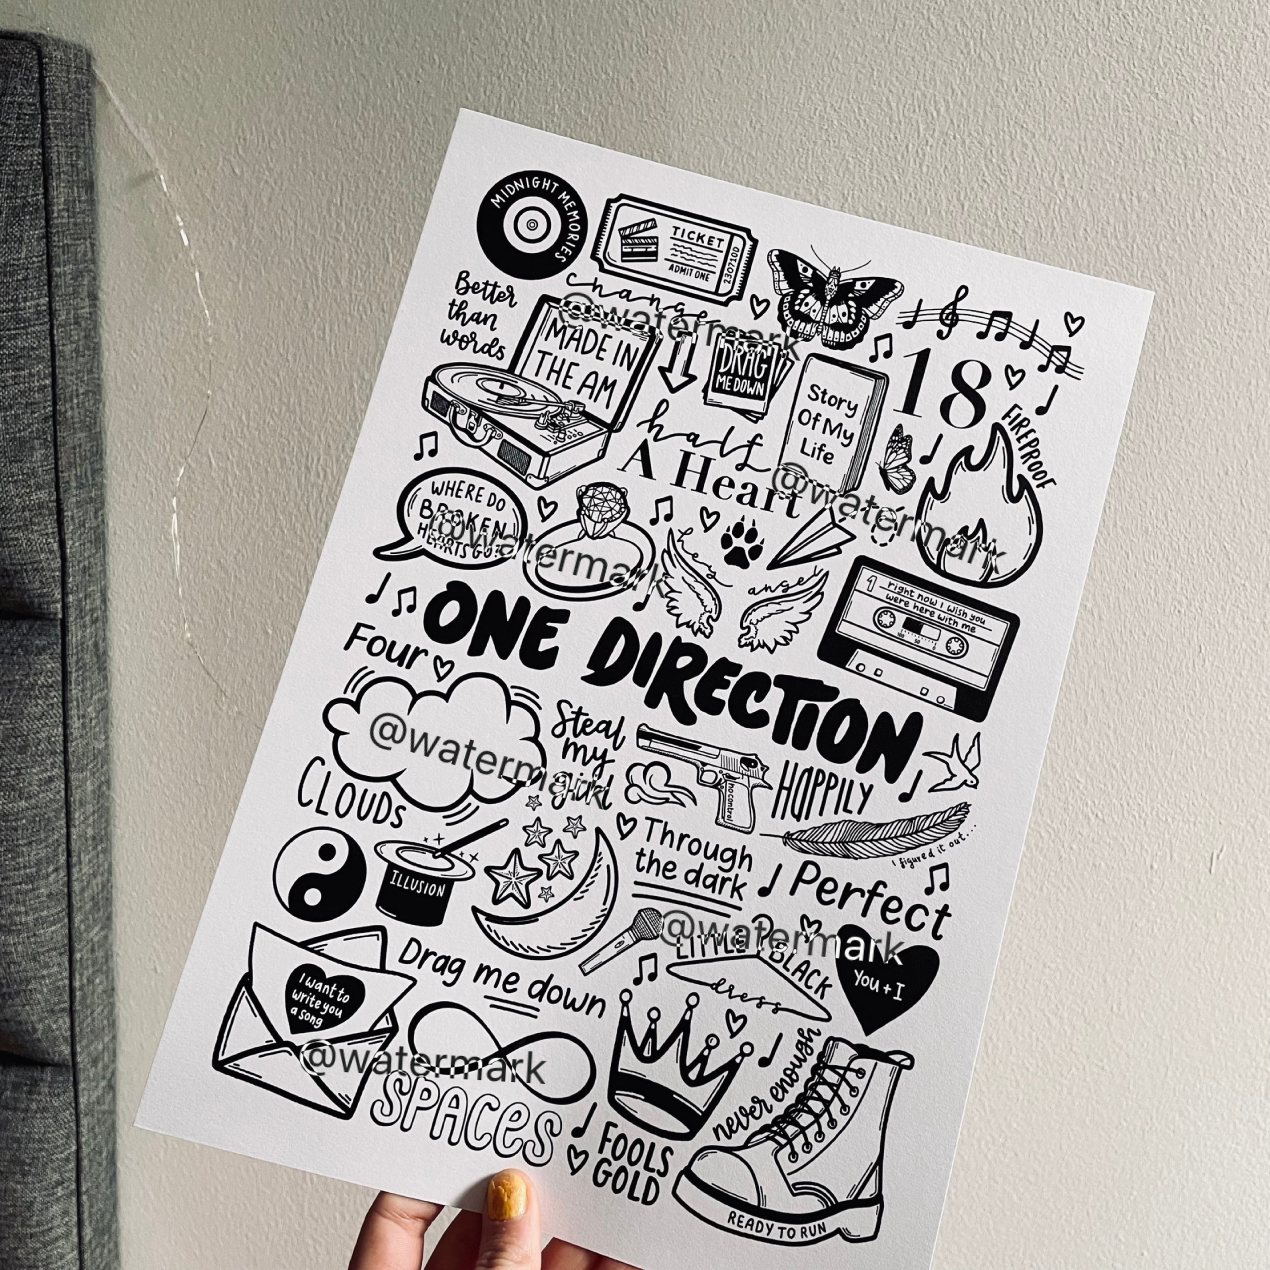 MIDNIGHT MEMORIES
TICKET
ADMIT ONE
2307100
Better
than
words
change
@watermark
MADE IN
THE AM
DRAG
ME DOWN
Story
Of My
Life
18
FIREPROOF
half
A Heart
@watermark
WHERE DO
BROKEN
HEARTS GO?
@watermark
he's
angel
right now I wish you
were here with me
ONE DIRECTION
Four
@watermark
CLOUDS
Steal
my
girl
no control
HAPPILY
I figured it out...
Through
the dark
Perfect
ILLUSION
@watermark
LITTLE BLACK
dress
You + I
I want to
write you
a song
Drag me down
@watermark
SPACES
never enough
FOOLS
GOLD
READY TO RUN